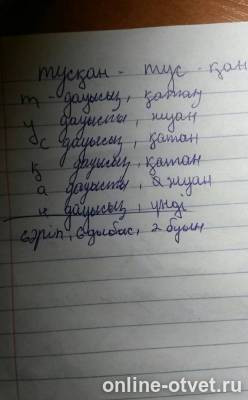 тусқан - тус - қан
т - дауысыз, қатаң
у дауысты, жуан
с дауысыз, қатаң
қ дауысыз, қатаң
а дауысты, жуан
н дауысыз, үнді
6 әріп, 6 дыбыс, 2 буын
online-otvet.ru